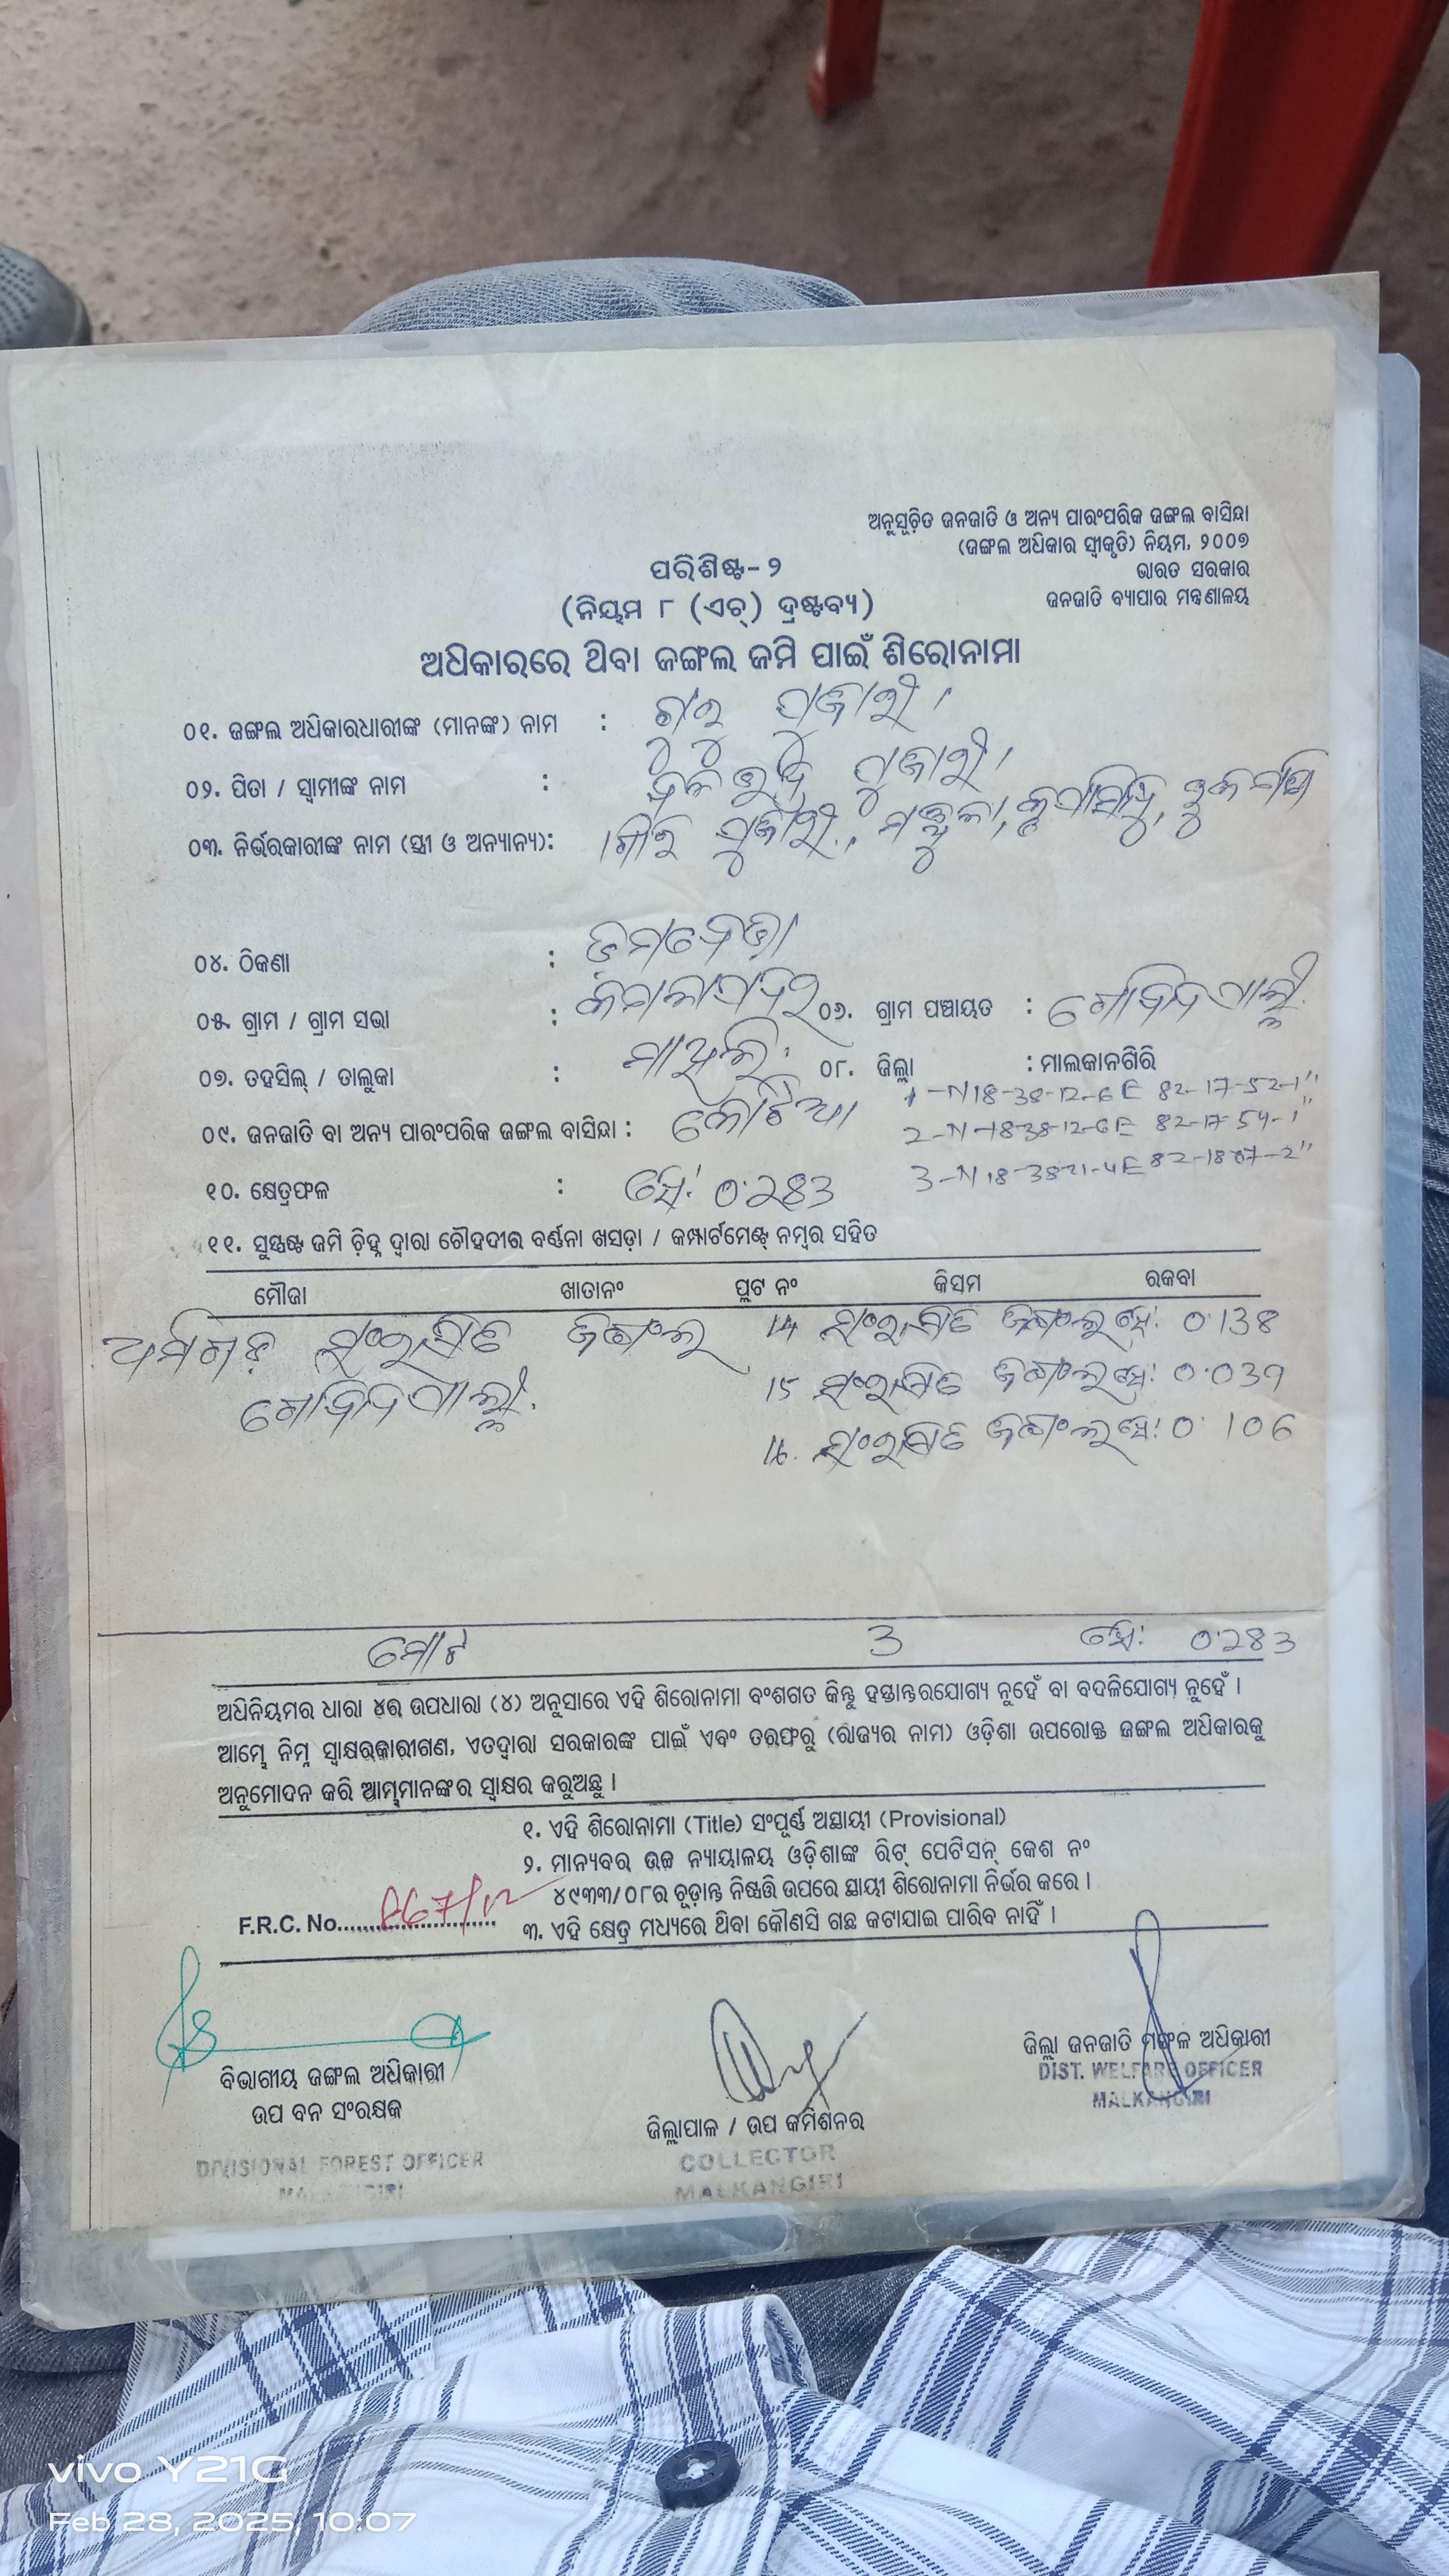 ଅନୁସୂଚିତ ଜନଜାତି ଓ ଅନ୍ୟ ପାରଂପରିକ ଜଙ୍ଗଲ ବାସିନ୍ଦା
(ଜଙ୍ଗଲ ଅଧିକାର ସ୍ୱୀକୃତି) ନିୟମ, ୨୦୦୭
ଭାରତ ସରକାର
ଜନଜାତି ବ୍ୟାପାର ମନ୍ତ୍ରଣାଳୟ
ପରିଶିଷ୍ଟ-୨
(ନିୟମ ୮ (ଏଚ୍) ଦ୍ରଷ୍ଟବ୍ୟ)
ଅଧିକାରରେ ଥିବା ଜଙ୍ଗଲ ଜମି ପାଇଁ ଶିରୋନାମା
୦୧. ଜଙ୍ଗଲ ଅଧିକାରଧାରୀଙ୍କ (ମାନଙ୍କ) ନାମ : ଗୁରୁ ପୂଜାରୀ ।
୦୨. ପିତା / ସ୍ୱାମୀଙ୍କ ନାମ : ପୂଜାରୀ ।
୦୩. ନିର୍ଭରକାରୀଙ୍କ ନାମ (ସ୍ତ୍ରୀ ଓ ଅନ୍ୟାନ୍ୟ): ପୂଜାରୀ,
୦୪. ଠିକଣା :
୦୫. ଗ୍ରାମ / ଗ୍ରାମ ସଭା : ୦୬. ଗ୍ରାମ ପଞ୍ଚାୟତ : ଗୋବିନ୍ଦପାଲ୍ଲୀ
୦୭. ତହସିଲ୍ / ତାଲୁକା : ମାଥିଲି ୦୮. ଜିଲ୍ଲା : ମାଲକାନଗିରି
1-N18-38-12-6E 82-17-52-1"
୦୯. ଜନଜାତି ବା ଅନ୍ୟ ପାରଂପରିକ ଜଙ୍ଗଲ ବାସିନ୍ଦା : 2-N-18-38-12-6E 82-17-54-1"
୧୦. କ୍ଷେତ୍ରଫଳ : ହେ: 0.283
୧୧. ସୁସ୍ପଷ୍ଟ ଜମି ଚିହ୍ନ ଦ୍ୱାରା ଚୌହଦୀର ବର୍ଣ୍ଣନା ଖସଡ଼ା / କମ୍ପାର୍ଟମେଣ୍ଟ୍ ନମ୍ବର ସହିତ
ମୌଜା ଖାତାନଂ ପ୍ଲଟ ନଂ କିସମ ରକବା
ସଂରକ୍ଷିତ ଜଙ୍ଗଲ 14 ସଂରକ୍ଷିତ ଜଙ୍ଗଲ ହେ: 0.138
ଗୋବିନ୍ଦପାଲ୍ଲୀ. 15 ସଂରକ୍ଷିତ ଜଙ୍ଗଲ ହେ: 0.039
16. ସଂରକ୍ଷିତ ଜଙ୍ଗଲ ହେ: 0.106
ମୋଟ 3 ହେ: 0.283
ଅଧିନିୟମର ଧାରା ୪ର ଉପଧାରା (୪) ଅନୁସାରେ ଏହି ଶିରୋନାମା ବଂଶଗତ କିନ୍ତୁ ହସ୍ତାନ୍ତରଯୋଗ୍ୟ ନୁହେଁ ବା ବଦଳିଯୋଗ୍ୟ ନୁହେଁ ।
ଆମ୍ଭେ ନିମ୍ନ ସ୍ୱାକ୍ଷରକାରୀଗଣ, ଏତଦ୍ୱାରା ସରକାରଙ୍କ ପାଇଁ ଏବଂ ତରଫରୁ (ରାଜ୍ୟର ନାମ) ଓଡ଼ିଶା ଉପରୋକ୍ତ ଜଙ୍ଗଲ ଅଧିକାରକୁ
ଅନୁମୋଦନ କରି ଆମ୍ଭମାନଙ୍କର ସ୍ୱାକ୍ଷର କରୁଅଛୁ ।
୧. ଏହି ଶିରୋନାମା (Title) ସଂପୂର୍ଣ୍ଣ ଅସ୍ଥାୟୀ (Provisional)
୨. ମାନ୍ୟବର ଉଚ୍ଚ ନ୍ୟାୟାଳୟ ଓଡ଼ିଶାଙ୍କ ରିଟ୍ ପେଟିସନ୍ କେଶ ନଂ
୪୯୩୩/୦୮ର ଚୂଡ଼ାନ୍ତ ନିଷ୍ପତ୍ତି ଉପରେ ସ୍ଥାୟୀ ଶିରୋନାମା ନିର୍ଭର କରେ ।
F.R.C. No.
୩. ଏହି କ୍ଷେତ୍ର ମଧ୍ୟରେ ଥିବା କୌଣସି ଗଛ କଟାଯାଇ ପାରିବ ନାହିଁ ।
ବିଭାଗୀୟ ଜଙ୍ଗଲ ଅଧିକାରୀ
ଉପ ବନ ସଂରକ୍ଷକ
DIVISIONAL FOREST OFFICER
MALKANGIRI
ଜିଲ୍ଲାପାଳ / ଉପ କମିଶନର
COLLECTOR
MALKANGIRI
ଜିଲ୍ଲା ଜନଜାତି ମଙ୍ଗଳ ଅଧିକାରୀ
DIST. WELFARE OFFICER
MALKANGIRI
vivo Y21G
Feb 28, 2025, 10:07